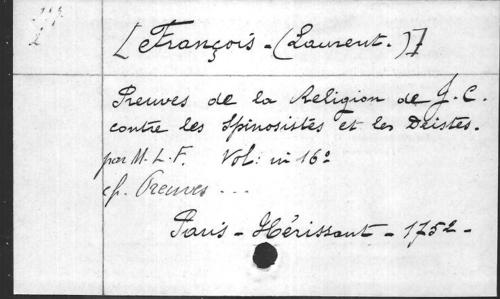 [François - (Laurent.)]
Preuves de la Religion de J. C.
contre les Spinosistes et les Deistes.
par M. L. F. Vol: in 16º
cf. Preuves ...
Paris - Hérissant - 1752 -